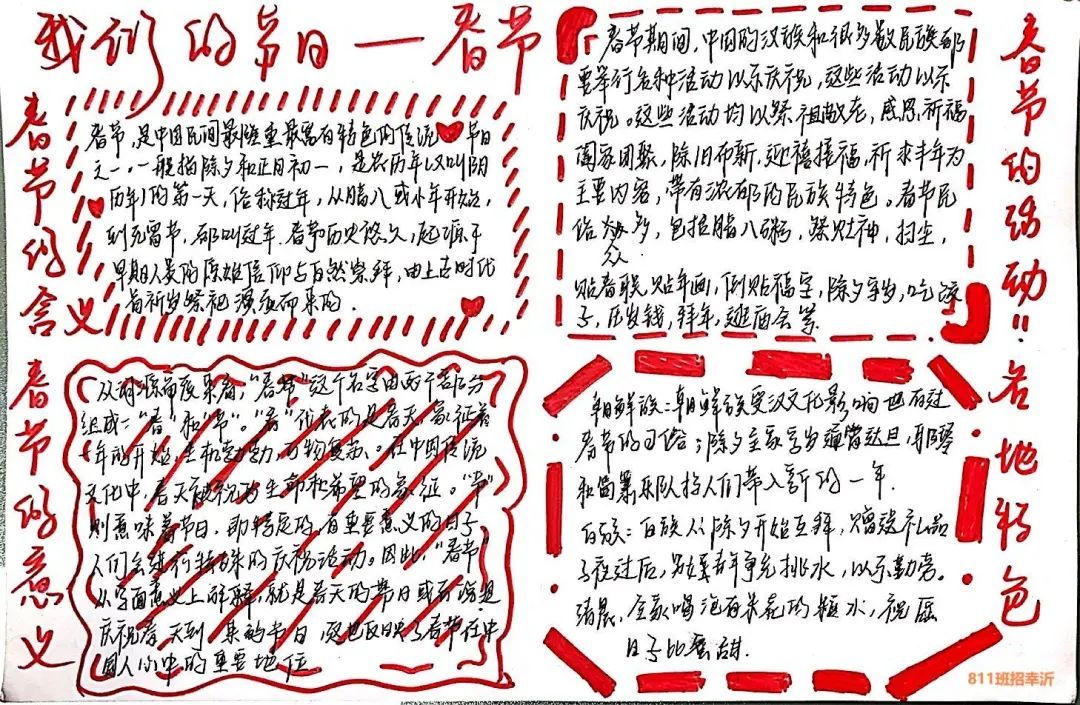 我们的节日—春节
春节的含义
春节,是中国民间最隆重最富有特色的传统节日
之一。一般指除夕和正月初一,是农历年(又叫阴
历年)的第一天,俗称过年,从腊八或小年开始,
到元宵节,都叫过年。春节历史悠久,起源于
早期人类的原始信仰与自然崇拜,由上古时代
岁首祈岁祭祀演变而来的.
春节的活动!!
春节期间,中国的汉族和很多数民族都
要举行各种活动以示庆祝,这些活动以示
庆祝。这些活动均以祭祖敬老,感恩祈福
阖家团聚,除旧布新,迎禧接福,祈求丰年为
主要内容,带有浓郁的民族特色。春节民
俗众多,包括腊八粥,祭灶神,扫尘,
贴春联,贴年画,倒贴福字,除夕守岁,吃饺
子,压岁钱,拜年,逛庙会等.
春节的意义
从词源角度来看,“春节”这个名字由两个部分
组成-“春”和“节”。“春”代表的是春天,象征着
年的开始,生机勃勃,万物复苏。在中国传统
文化中,春天被视为生命和希望的象征。“节”
则意味着节日,即特定的,有重要意义的日子
人们会进行特殊的庆祝活动。因此,“春节”
从字面意义上解释,就是春天的节日或者说是
庆祝春天到来的节日,这也反映了春节在中
国人心中的重要地位
各地特色
朝鲜族:朝鲜族受汉文化影响也有过
春节的习俗;除夕全家守岁通宵达旦,
和筒箫乐队将人们带入新的一年.
白族:白族人除夕开始互拜,赠送礼品
子夜过后,男女青年争先挑水,以示勤劳。
清晨,全家喝泡有米花的糖水,祝愿
日子比蜜甜.
811班招幸沂